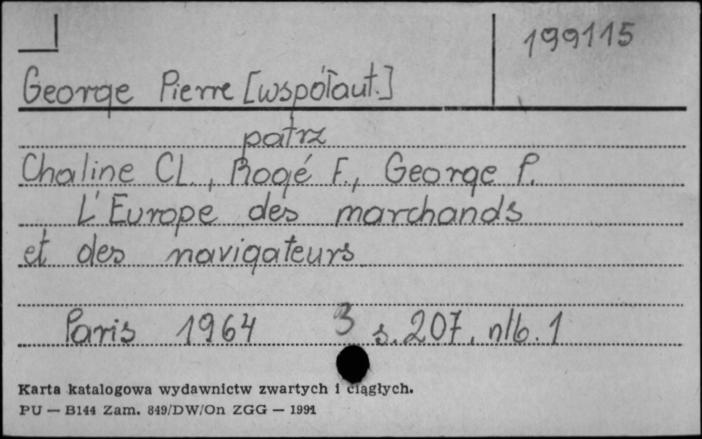 199115
George Pierre [współaut.]
patrz
Chaline Cl., Rogé F., George P.
L'Europe des marchands
et des navigateurs
Paris 1964 3 s. 207, nlb. 1
Karta katalogowa wydawnictw zwartych i ciągłych.
PU — B144 Zam. 849/DW/On ZGG — 1991